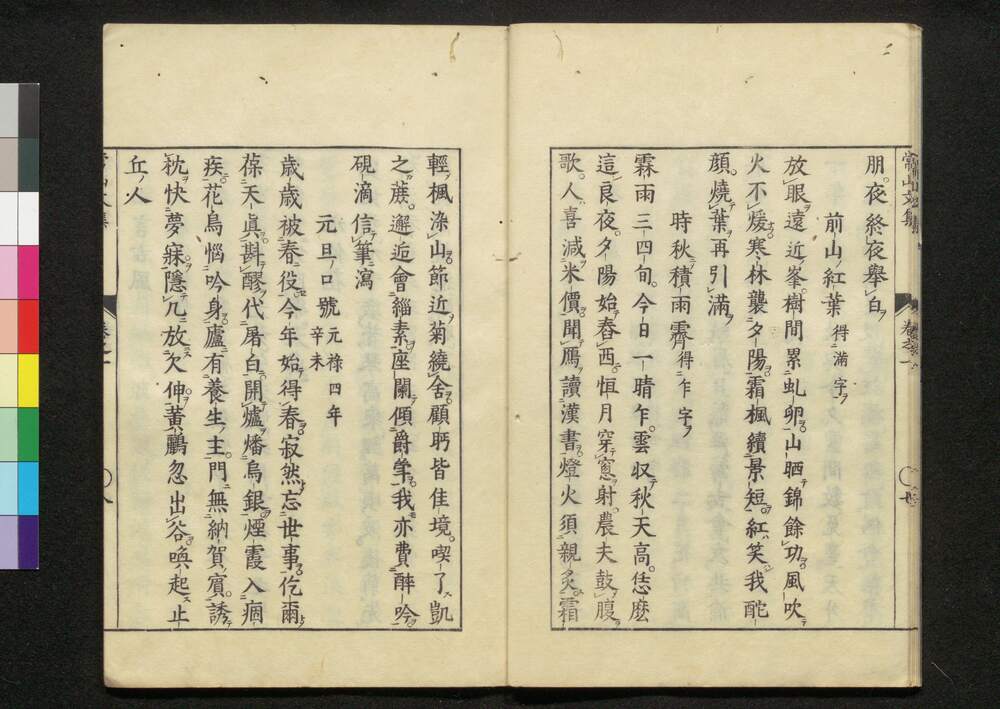 常山文集
朋夜終夜舉白
前山紅葉 得滿字
放眼遠近峯樹間累虬卵山晒錦餘功風吹
火不煖寒林襲夕陽霜楓續景短紅笑我酡
顏燒葉再引滿
時秋積雨霽 得乍字
霖雨三四旬今日一晴乍雲収秋天高恁麼
這良夜夕陽始舂西恒月穿窓射農夫鼓腹
歌人喜減米價聞鴈讀漢書燈火須親炙霜
輕楓染山節近菊繞舍顧眄皆佳境喫了凱
之蔗邂逅會緇素座闌傾爵斝我亦費醉吟
硯滴信筆瀉
元旦口號 元祿四年辛未
歳歳被春役今年始得春寂然忘世事仡爾
葆天眞斟醪代屠白開爐燔烏銀煙霞入痼
疾花鳥惱吟身廬有養生主門無納賀賓誘
枕快夢寐隱几放欠伸黃鸝忽出谷喚起止
丘人